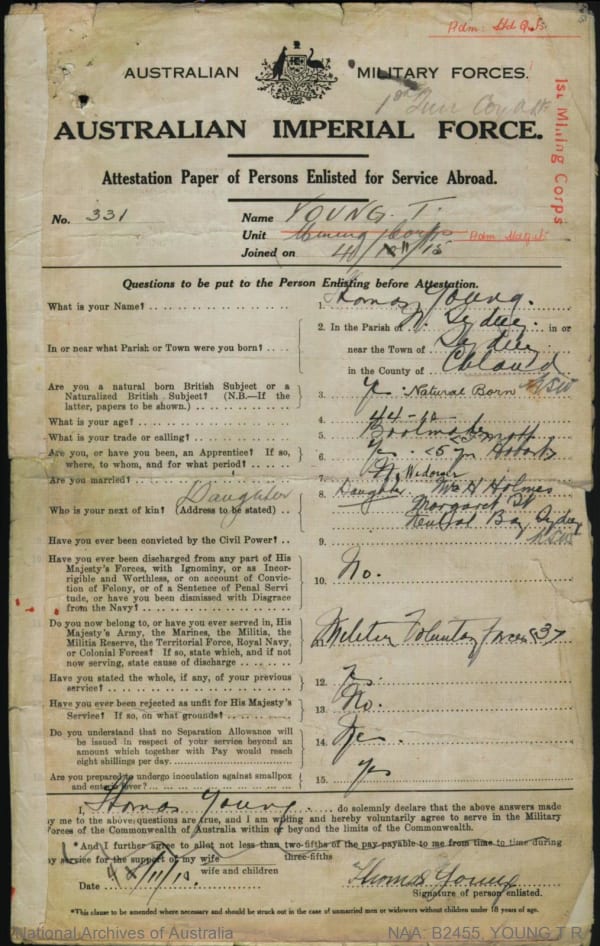 Adm: Hd Qrs
AUSTRALIAN MILITARY FORCES.
1st
AUSTRALIAN IMPERIAL FORCE.
1st Mining Corps
Attestation Paper of Persons Enlisted for Service Abroad.
No. 331 Name YOUNG. T.
Unit Mining Corps
Joined on 4/11/15
Questions to be put to the Person Enlisting before Attestation.
What is your Name? 1. Thomas Young.
In or near what Parish or Town were you born? 2. In the Parish N. Sydney. in or
near the Town of Sydney
in the County of
Are you a natural born British Subject or a Naturalized British Subject? (N.B.—If the latter, papers to be shown.) 3. Natural Born NSW
What is your age? 4. 44
What is your trade or calling? 5.
Are you, or have you been, an Apprentice? If so, where, to whom, and for what period? 6. 5 yrs
Are you married? 7. Widower
Who is your next of kin? (Address to be stated) Daughter 8. Daughter Mrs H Holmes
Margaret St
Neutral Bay Sydney
Have you ever been convicted by the Civil Power? 9. NSW
Have you ever been discharged from any part of His
Majesty's Forces, with Ignominy, or as Incor-
rigible and Worthless, or on account of Convic-
tion of Felony, or of a Sentence of Penal Servi
tude, or have you been dismissed with Disgrace
from the Navy? 10. No.
Do you now belong to, or have you ever served in, His
Majesty's Army, the Marines, the Militia, the
Militia Reserve, the Territorial Force, Royal Navy,
or Colonial Forces? If so, state which, and if not
now serving, state cause of discharge
Have you stated the whole, if any, of your previous
service? 12. Yes.
Have you ever been rejected as unfit for His Majesty's
Service? If so, on what grounds? 13. No.
Do you understand that no Separation Allowance will
be issued in respect of your service beyond an
amount which together with Pay would reach
eight shillings per day. 14. Yes.
Are you prepared to undergo inoculation against smallpox
and enteric fever? 15. Yes
I, Thomas Young do solemnly declare that the above answers made
by me to the above questions are true, and I am willing and hereby voluntarily agree to serve in the Military
Forces of the Commonwealth of Australia within or beyond the limits of the Commonwealth.
*And I further agree to allot not less than two-fifths of the pay payable to me from time to time during
three-fifths
my service for the support of my wife
wife and children
Date 4/11/15 Thomas Young
Signature of person enlisted.
*This clause to be amended where necessary and should be struck out in the case of unmarried men or widowers without children under 18 years of age.
National Archives of Australia NAA: B2455, YOUNG T R